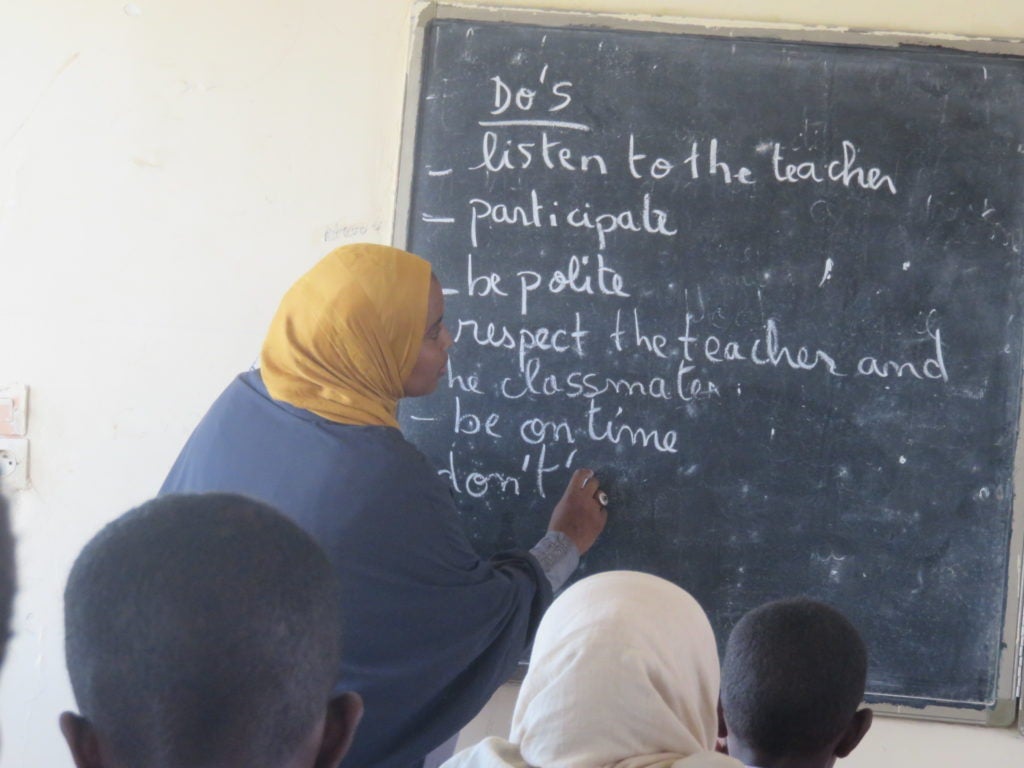 Do's
- listen to the teacher
- participate
- be polite
respect the teacher and
he classmates.
- be on time
don't